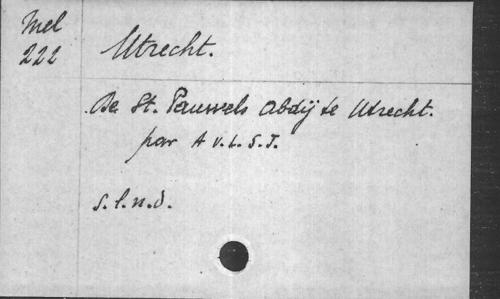 Mel
222
Utrecht.
De St. Pauwels Abdij te Utrecht.
par A v. L. S. J.
s. l. n. d.